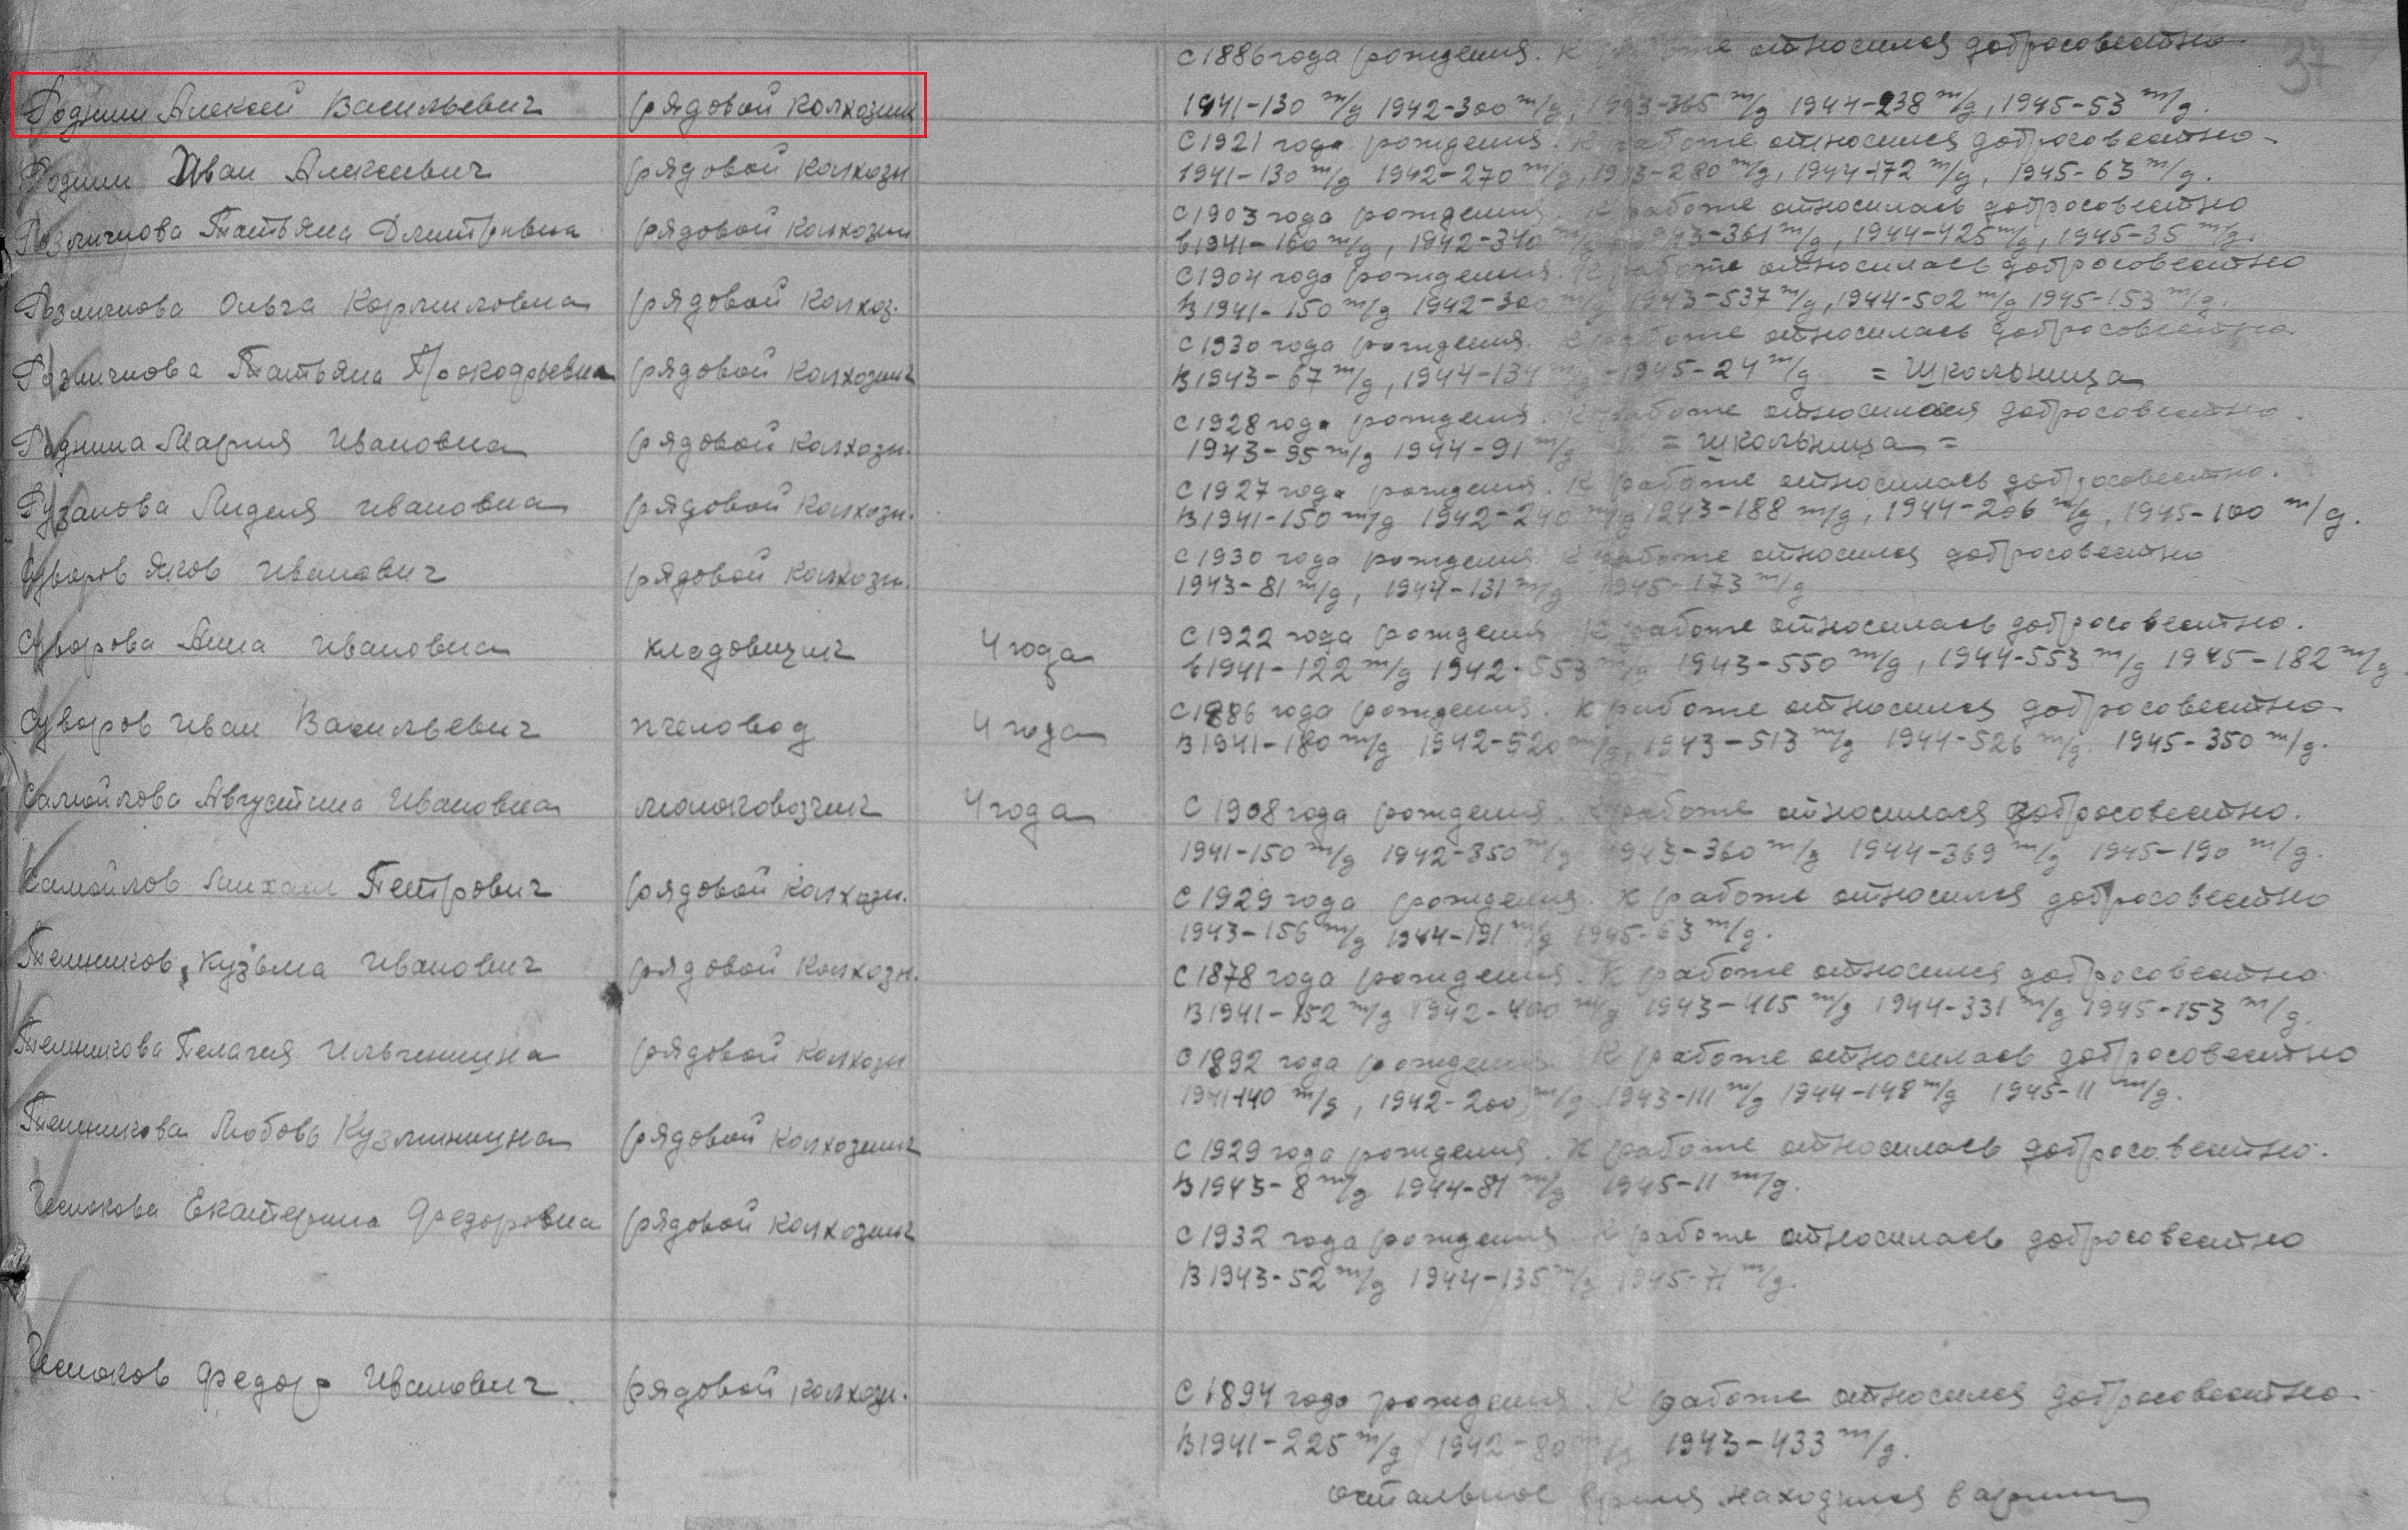 С 1886 года рождения. К работе относился добросовестно 37
Родини Алексей Васильевич рядовой колхозник 1941-130 т/д 1942-300 т/д, 1943-365 т/д 1944-238 т/д, 1945-53 т/д.
С 1921 года рождения. К работе относился добросовестно
Родини Иван Алексевич рядовой колхозн 1941-130 т/д 1942-270 т/д, 1943-280 т/д, 1944-172 т/д, 1945-63 т/д.
С 1903 года рождения. К работе относилась добросовестно
Розличнова Татьяна Дмитривна рядовой колхозн в 1941-160 т/д, 1942-340 т/д 1943-361 т/д, 1944-425 т/д, 1945-35 т/д.
С 1904 года рождения. К работе относилась добросовестно
Розличнова Ольга Корниловна рядовой колхоз. В 1941-150 т/д 1942-300 т/д 1943-537 т/д, 1944-502 т/д 1945-153 т/д.
С 1930 года рождения. К работе относилась добросовестно.
Розличнова Татьяна Прокофьевна рядовой колхозник В 1943-67 т/д, 1944-134 т/д -1945-24 т/д = Школьница
С 1928 года рождения. К работе относилася добросовестно.
Роднина Мария Ивановна рядовой колхозн. 1943-95 т/д 1944-91 т/д = школьница =
С 1927 года рождения. К работе относилась добросовестно.
Рузанова Лидия Ивановна рядовой колхозн. В 1941-150 т/д 1942-240 т/д 1943-188 т/д, 1944-206 т/д, 1945-100 т/д.
С 1930 года рождения. К работе относился добросовестно
Суворов Яков Иванович рядовой колхозн. 1943-81 т/д, 1944-131 т/д 1945-173 т/д
С 1922 года рождения К работе относилась добросовестно.
Суворова Анна Ивановна кладовщик 4 года в 1941-122 т/д 1942-553 т/д 1943-550 т/д, 1944-553 т/д 1945-182 т/д
С 1886 года рождения. К работе относился добросовестно.
Суворов Иван Васильевич пчеловод 4 года В 1941-180 т/д 1942-520 т/д, 1943-513 т/д 1944-526 т/д. 1945-350 т/д.
Самойлова Августина Ивановна молоковозчик 4 года С 1908 года рождения. К работе относилася добросовестно.
1941-150 т/д 1942-350 т/д 1943-360 т/д 1944-369 т/д 1945-190 т/д.
Самойлов Михаил Петрович рядовой колхозн. С 1929 года рождения. К работе относился добросовестно
1943-156 т/д 1944-191 т/д 1945-63 т/д.
Телников Кузьма Иванович рядовой колхозн. С 1878 года рождения. К работе относился добросовестно
В 1941-152 т/д 1942-400 т/д 1943-415 т/д 1944-331 т/д 1945-153 т/д.
Телникова Пелагея Ильиничина рядовой колхозн С 1892 года рождения К работе относилась добросовестно
1941-140 т/д, 1942-200 т/д 1943-111 т/д 1944-148 т/д 1945-11 т/д.
Телникова Любовь Кузминична рядовой колхозник С 1929 года рождения. К работе относилась добросовестно.
В 1943-8 т/д 1944-81 т/д 1945-11 т/д.
Чеснокова Екатерина Федоровна рядовой колхозник С 1932 года рождения К работе относилась добросовестно
В 1943-52 т/д 1944-135 т/д 1945-71 т/д.
Чесноков Федор Иванович рядовой колхозн. С 1894 года рождения. К работе относился добросовестно.
В 1941-225 т/д 1942-80 т/д 1943-433 т/д.
остальное время находился в армии